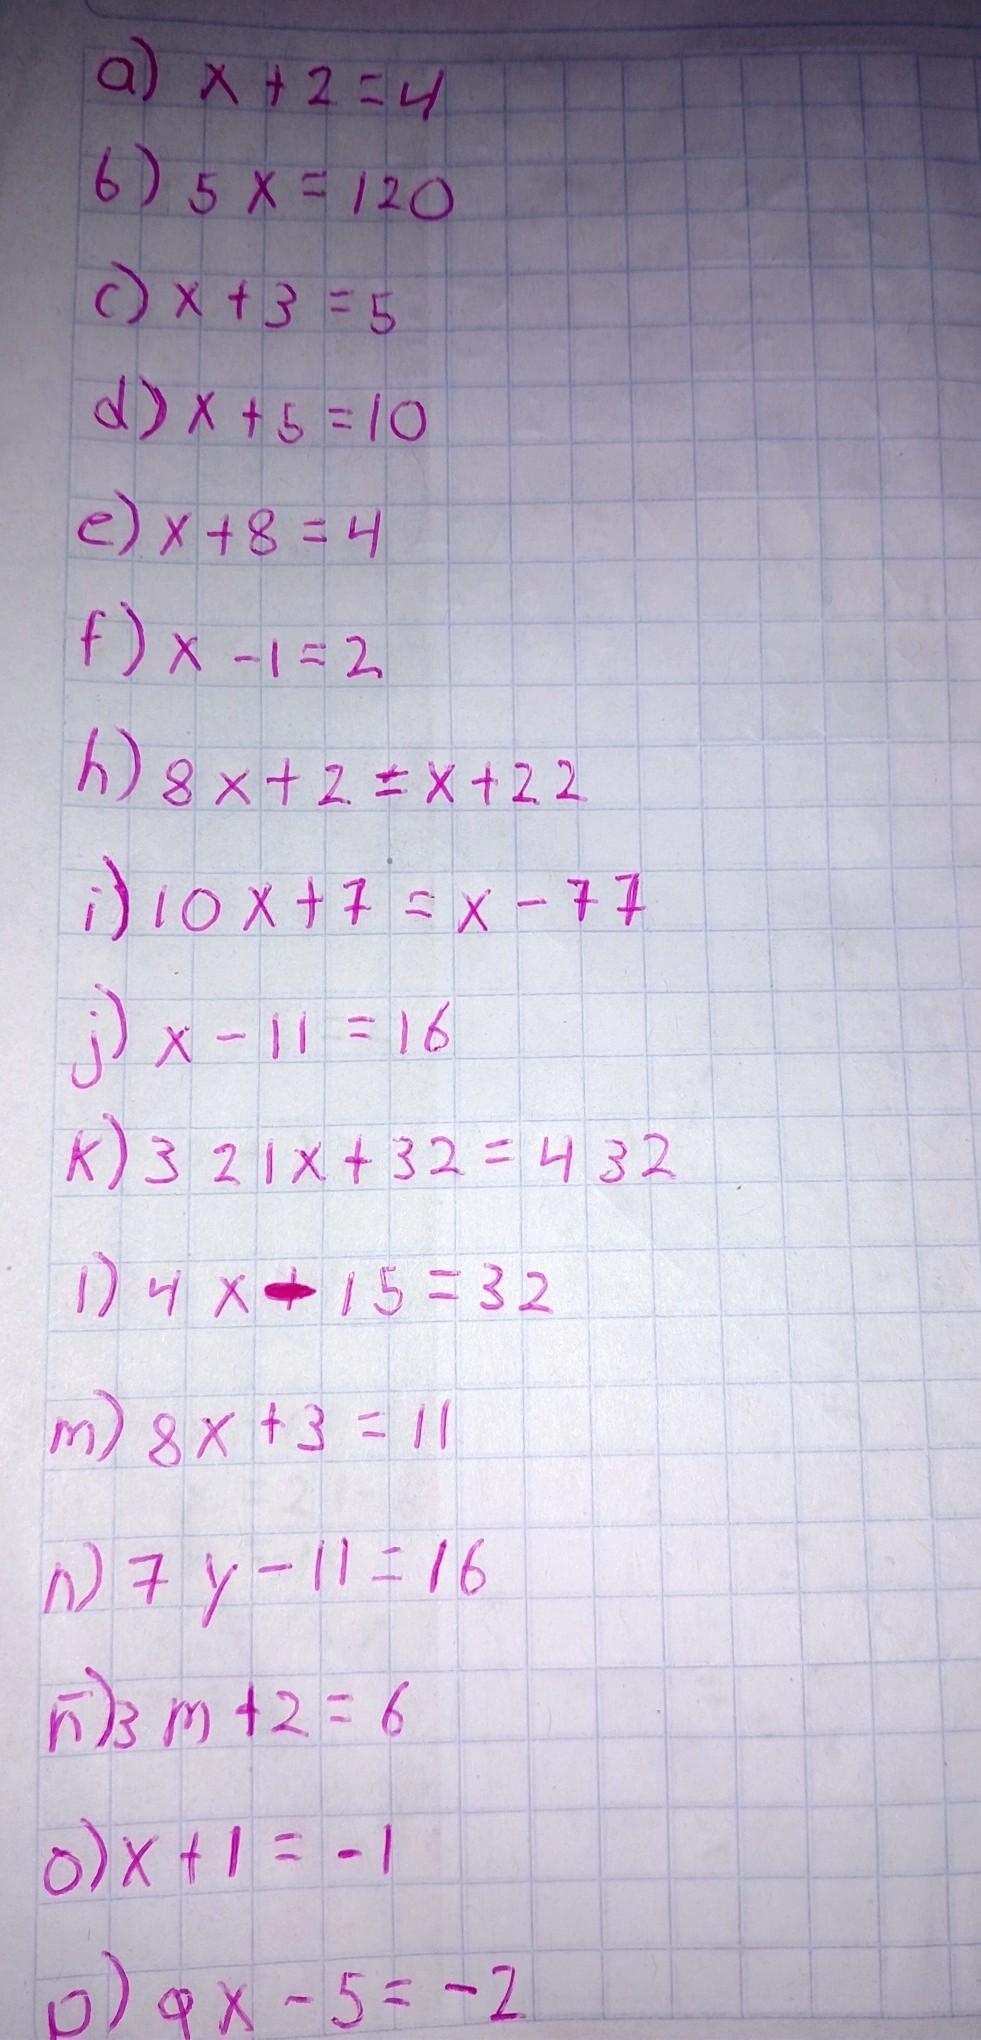 a) x + 2 = 4
b) 5x = 120
c) x + 3 = 5
d) x + 5 = 10
e) x + 8 = 4
f) x - 1 = 2
h) 8x + 2 = x + 22
i) 10x + 7 = x - 77
j) x - 11 = 16
k) 321x + 32 = 432
l) 4x - 15 = 32
m) 8x + 3 = 11
n) 7y - 11 = 16
ñ) 3m + 2 = 6
o) x + 1 = -1
p) 9x - 5 = -2